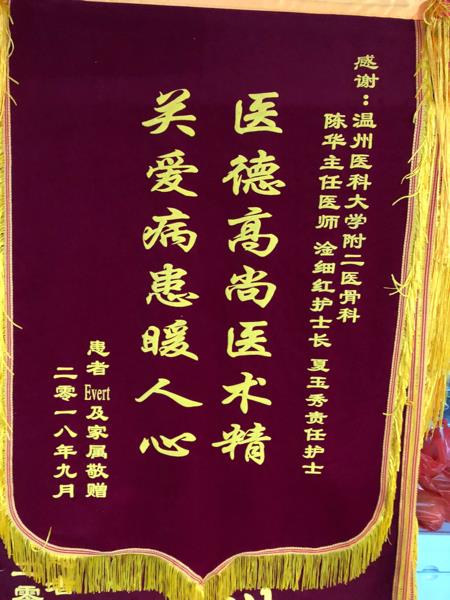 感谢：温州医科大学附二医骨科
陈华主任医师 淦细红护士长 夏玉秀责任护士
医德高尚医术精
关爱病患暖人心
患者Evert及家属敬赠
二零一八年九月